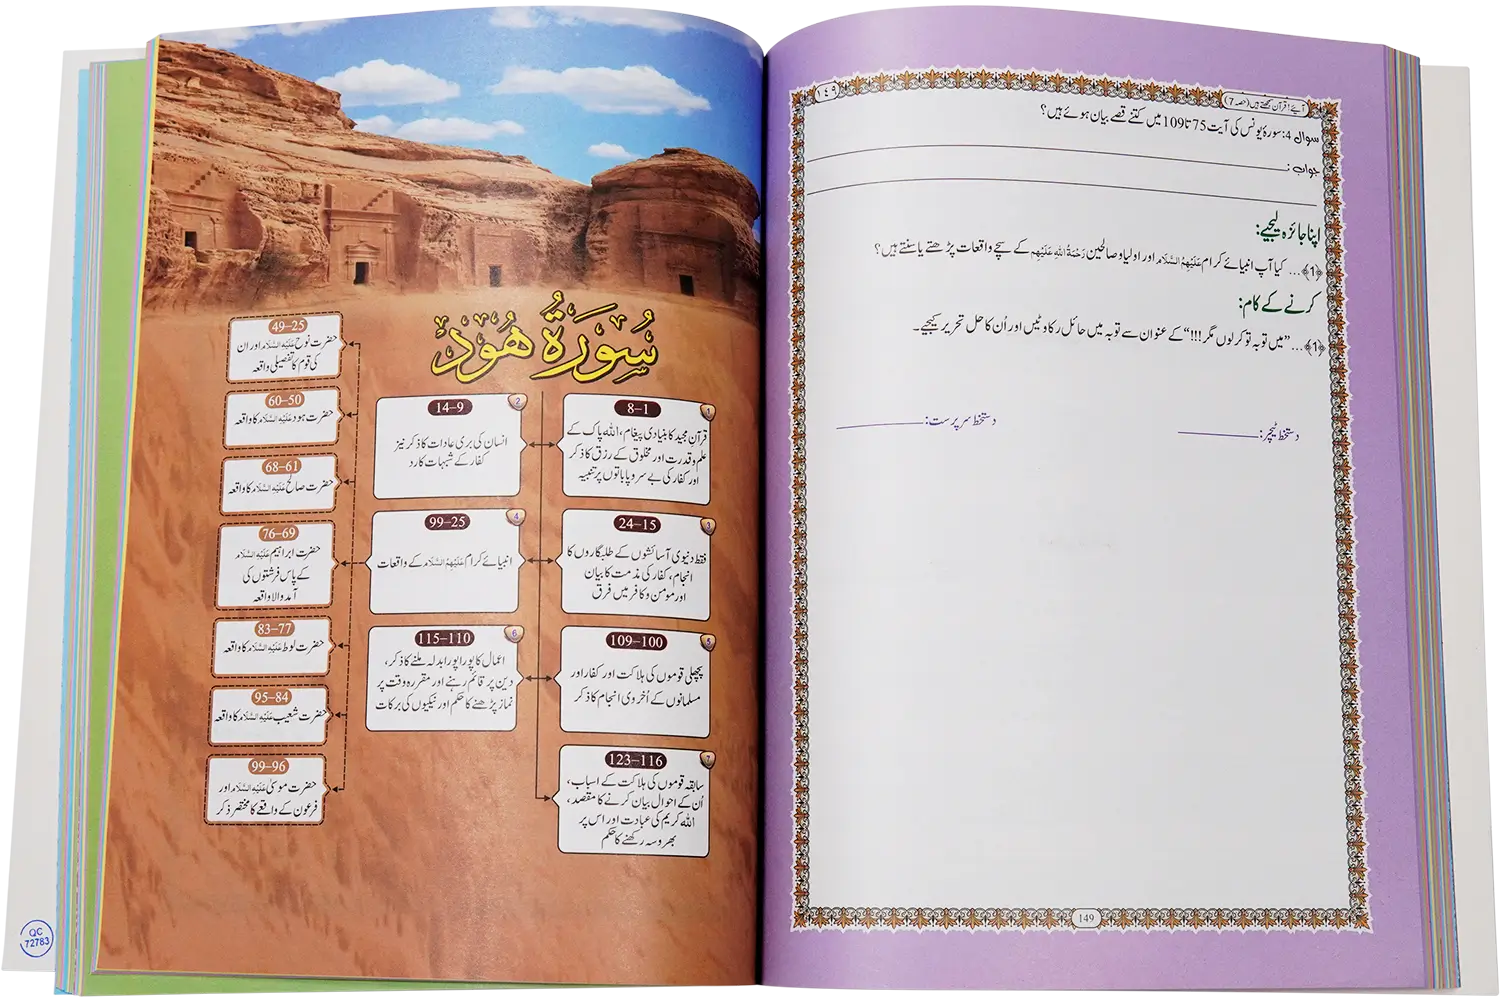 ١٤٩
آیئے! قرآن سمجھتے ہیں (حصہ 7)
سوال 4: سورۂ یونس کی آیت 75 تا 109 میں کتنے قصے بیان ہوئے ہیں؟
جواب:
اپنا جائزہ لیجیے:
﴿1﴾... کیا آپ انبیائے کرام عَلَیْہِمُ السَّلَام اور اولیا و صالحین رَحْمَۃُ اللّٰہِ عَلَیْہِم کے سچے واقعات پڑھتے یا سنتے ہیں؟
کرنے کے کام:
﴿1﴾... ”میں توبہ تو کرلوں مگر!!!“ کے عنوان سے توبہ میں حائل رکاوٹیں اور اُن کا حل تحریر کیجیے۔
دستخط ٹیچر:
دستخط سرپرست:
149
سُوْرَةُ هُوْد
1
8–1
قرآنِ مجید کا بنیادی پیغام، اللہ پاک کے
علم و قدرت اور مخلوق کے رزق کا ذکر
اور کفار کی بے سروپا باتوں پر تنبیہ
2
14–9
انسان کی بری عادات کا ذکر نیز
کفار کے شبہات کا رد
3
24–15
فقط دنیوی آسائشوں کے طلبگاروں کا
انجام، کفار کی مذمت کا بیان
اور مومن و کافر میں فرق
4
99–25
انبیائے کرام عَلَیْہِمُ السَّلَام کے واقعات
5
109–100
پچھلی قوموں کی ہلاکت اور کفار اور
مسلمانوں کے اُخروی انجام کا ذکر
6
115–110
اعمال کا پورا پورا بدلہ ملنے کا ذکر،
دین پر قائم رہنے اور مقررہ وقت پر
نماز پڑھنے کا حکم اور نیکیوں کی برکات
7
123–116
سابقہ قوموں کی ہلاکت کے اسباب،
اُن کے احوال بیان کرنے کا مقصد،
اللہ کریم کی عبادت اور اس پر
بھروسہ رکھنے کا حکم
49–25
حضرت نوح عَلَیْہِ السَّلَام اور ان
کی قوم کا تفصیلی واقعہ
60–50
حضرت ہود عَلَیْہِ السَّلَام کا واقعہ
68–61
حضرت صالح عَلَیْہِ السَّلَام کا واقعہ
76–69
حضرت ابراہیم عَلَیْہِ السَّلَام
کے پاس فرشتوں کی
آمد والا واقعہ
83–77
حضرت لوط عَلَیْہِ السَّلَام کا واقعہ
95–84
حضرت شعیب عَلَیْہِ السَّلَام کا واقعہ
99–96
حضرت موسیٰ عَلَیْہِ السَّلَام اور
فرعون کے واقعے کا مختصر ذکر
QC
72783